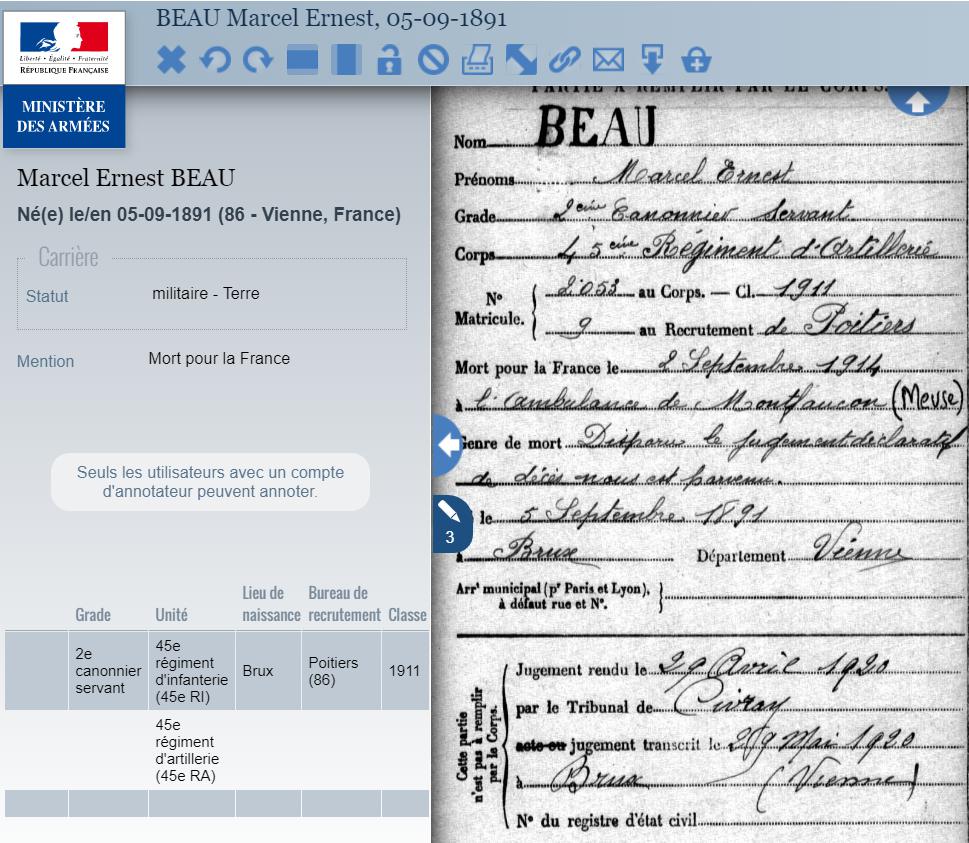 BEAU Marcel Ernest, 05-09-1891
Liberté • Égalité • Fraternité
RÉPUBLIQUE FRANÇAISE
MINISTÈRE
DES ARMÉES
Marcel Ernest BEAU
Né(e) le/en 05-09-1891 (86 - Vienne, France)
Carrière
Statut militaire - Terre
Mention Mort pour la France
Seuls les utilisateurs avec un compte
d'annotateur peuvent annoter.
Grade Unité Lieu de naissance Bureau de recrutement Classe
2e canonnier servant 45e régiment d'infanterie (45e RI) Brux Poitiers (86) 1911
45e régiment d'artillerie (45e RA)
PARTIE A REMPLIR PAR LE CORPS.
Nom BEAU
Prénoms Marcel Ernest
Grade 2ème Canonnier Servant
Corps 45ème Régiment d'Artillerie
N° Matricule. { 2053 au Corps. — Cl. 1911
9 au Recrutement de Poitiers
Mort pour la France le 2 Septembre 1914
à l'ambulance de Montfaucon (Meuse)
Genre de mort Disparu le jugement déclaratif
de décès nous est parvenu.
le 5 Septembre 1891
3
à Brux Département Vienne
Arrt municipal (pr Paris et Lyon),
à défaut rue et N°.
Cette partie
n'est pas à remplir
par le Corps.
Jugement rendu le 29 Avril 1920
par le Tribunal de Civray
acte ou jugement transcrit le 29 Mai 1920
à Brux (Vienne)
N° du registre d'état civil